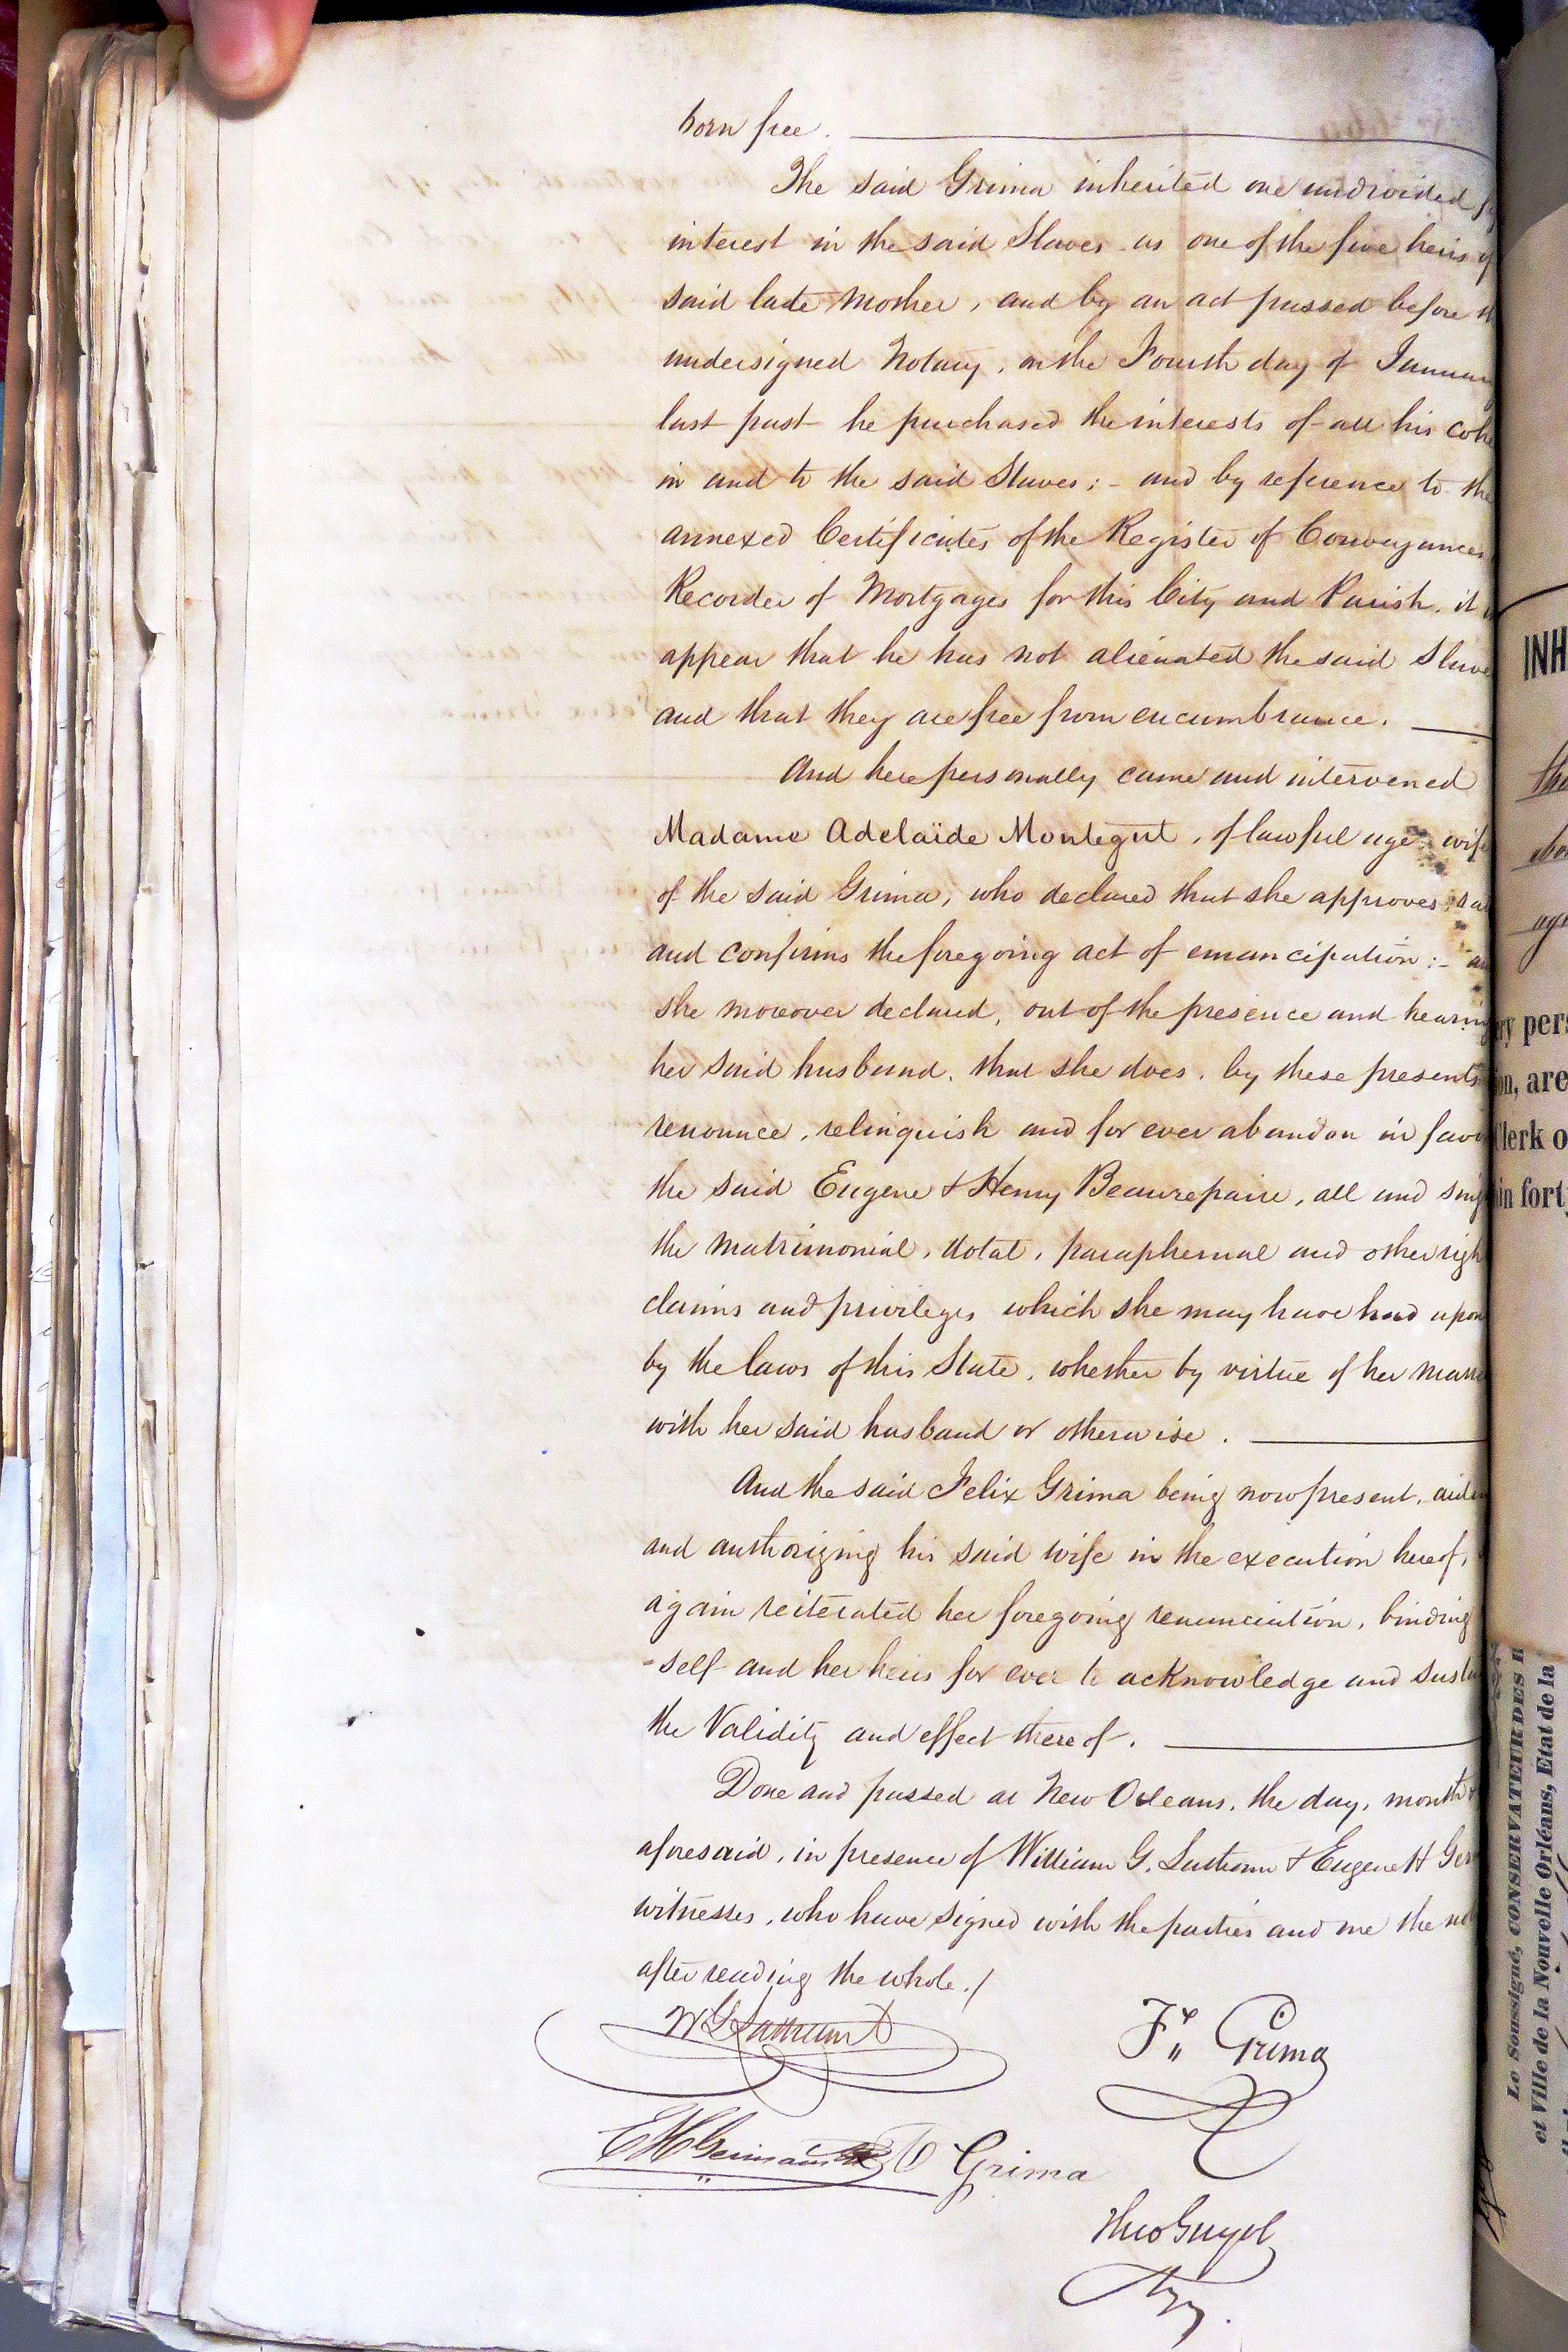 born free.
The said Grima inherited one undivided
interest in the said Slaves as one of the five heirs of
said late mother, and by an act passed before
undersigned Notary, on the Fourth day of Januar
last past he purchased the interests of all his cohe
in and to the said Slaves; - and by reference to the
annexed Certificates of the Register of Conveyances
Recorder of Mortgages for this City and Parish, it
appear that he has not alienated the said Slave
and that they are free from encumbrance.
And here personally came and intervened
Madame Adelaïde Montegut, of lawful age, wife
of the said Grima, who declared that she approves,
and confirms the foregoing act of emancipation; -
she moreover declared, out of the presence and hearing
her said husband, that she does, by these presents
renounce, relinquish and for ever abandon in favo
the said Eugene & Henry Beaurepaire, all and sing
the matrimonial, dotal, paraphernal and other righ
claims and privileges which she may have had upon
by the laws of this State, whether by virtue of her marri
with her said husband or otherwise.
And the said Felix Grima being now present, aidin
and authorizing his said wife in the execution hereof,
again reiterated her foregoing renunciation, binding
-self and her heirs for ever to acknowledge and susta
the Validity and effect thereof.
Done and passed at New Orleans, the day, month &
aforesaid, in presence of William G. Latham & Eugene H Ger
witnesses, who have signed with the parties and me the no
after reading the whole./
W G Latham
Fx Grima
E H Germain
Grima
Theo Guyol
INH
the
ry pers
on, are
Clerk o
in fort
Le Soussigné, CONSERVATEUR DES H
et Ville de la Nouvelle Orléans, Etat de la